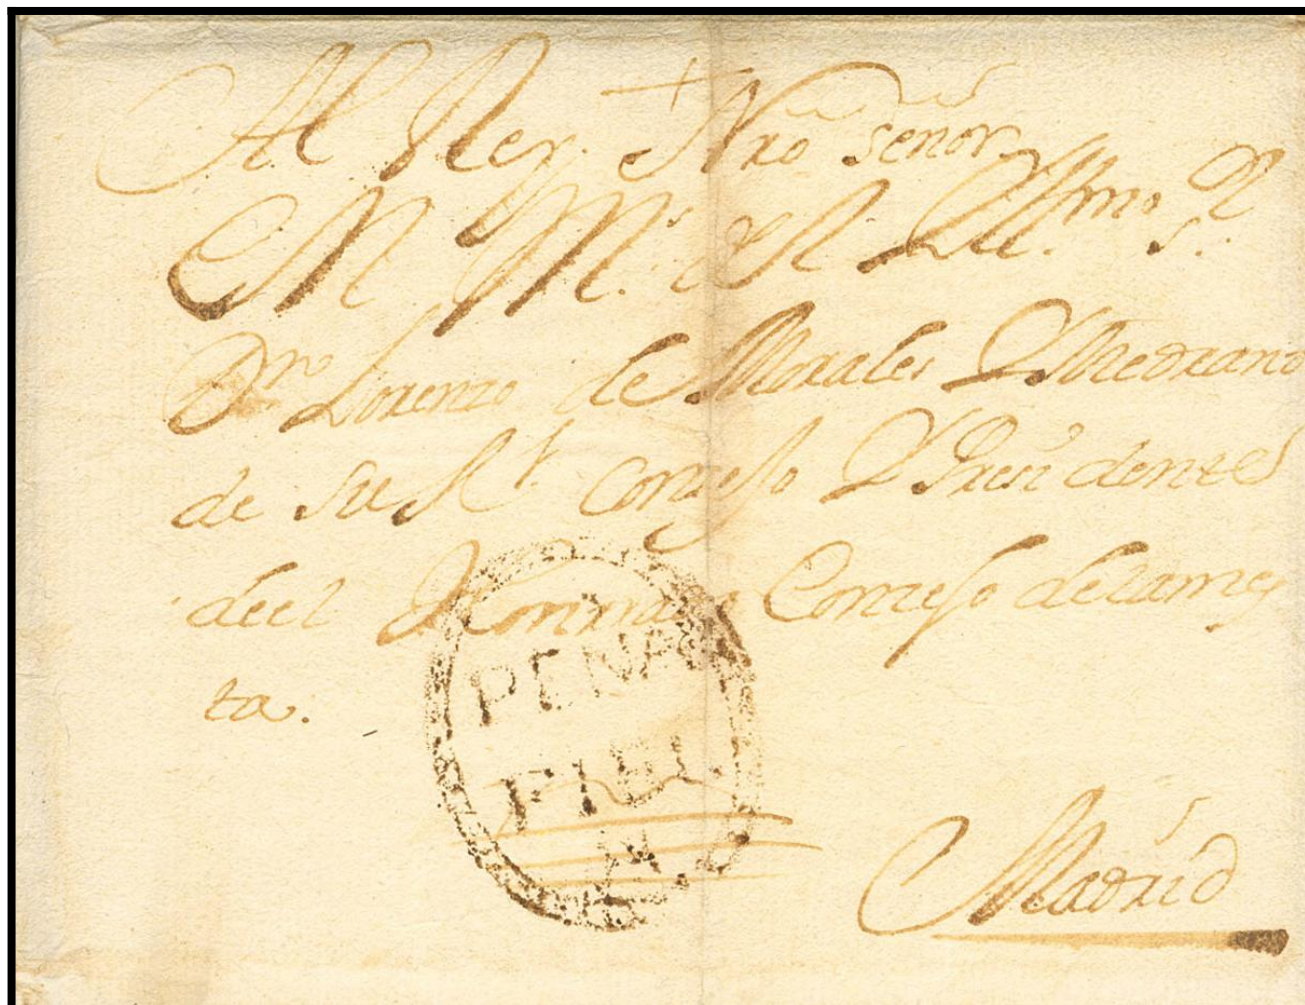 +
Al Rey Nrō Señor
M. M.s de R Ill.mo S.r
Dn Lorenzo de Morales Y Medrano
de su Rl. Consejo Y Presidente
deel Honrrado Conzejo delames
ta.
PEÑA
FIEL
Madrid